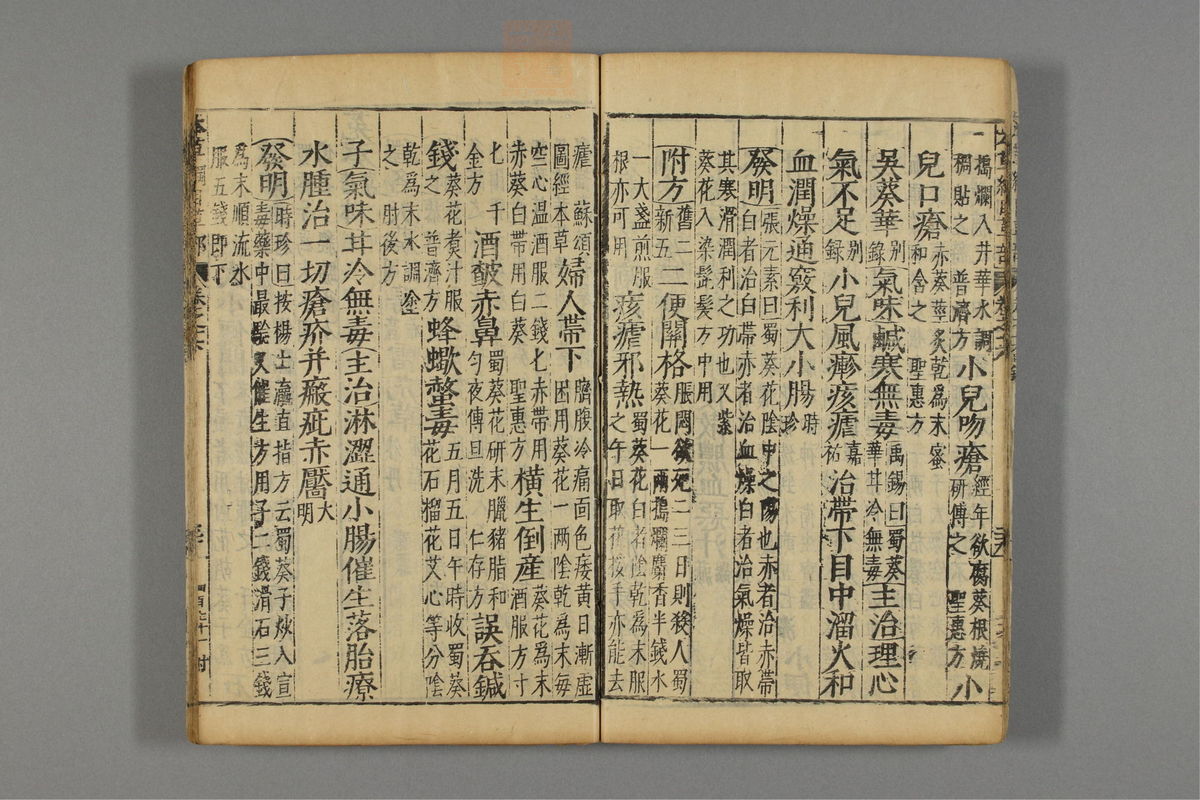 一擣爛入井華水調稠貼之 普濟方 小兒吻瘡經年欲腐葵根燒研傅之 聖惠方 小
兒口瘡赤葵莖炙乾為末蜜和含之 聖惠方
吳葵華別錄氣味鹹寒無毒禹錫曰蜀葵華甘冷無毒主治理心
氣不足別錄小兒風𤺋痎瘧嘉祐治帶下目中溜火和
血潤燥通竅利大小腸時珍
發明張元素曰蜀葵花陰中之陽也赤者治赤帶白者治白帶赤者治血燥白者治氣燥皆取
其寒滑潤利之功也又紫葵花入染髭髮方中用
附方舊二新五二便關格脹悶欲死二三日則殺人蜀葵花一兩擣爛麝香半錢水
一大盞煎服根亦可用 痎瘧邪熱蜀葵花白者陰乾為末服之午日取花挼手亦能去
瘧 蘇頌圖經本草 婦人帶下臍腹冷痛面色痿黃日漸虛困用葵花一兩陰乾為末每
空心溫酒服二錢匕赤帶用赤葵白帶用白葵 聖惠方 橫生倒產葵花為末酒服方寸
匕 千金方 酒皶赤鼻蜀葵花研末臘豬脂和勻夜傅旦洗 仁存方 誤吞鍼
錢葵花煮汁服之 普濟方 蜂蠍螫毒五月五日午時收蜀葵花石榴花艾心等分陰
乾為末水調塗之 肘後方
子氣味甘冷無毒主治淋澀通小腸催生落胎療
水腫治一切瘡疥并瘢疵赤靨大明
發明時珍曰按楊士瀛直指方云蜀葵子炒入宣毒藥中最驗又催生方用子二錢滑石三錢
為末順流水服五錢即下